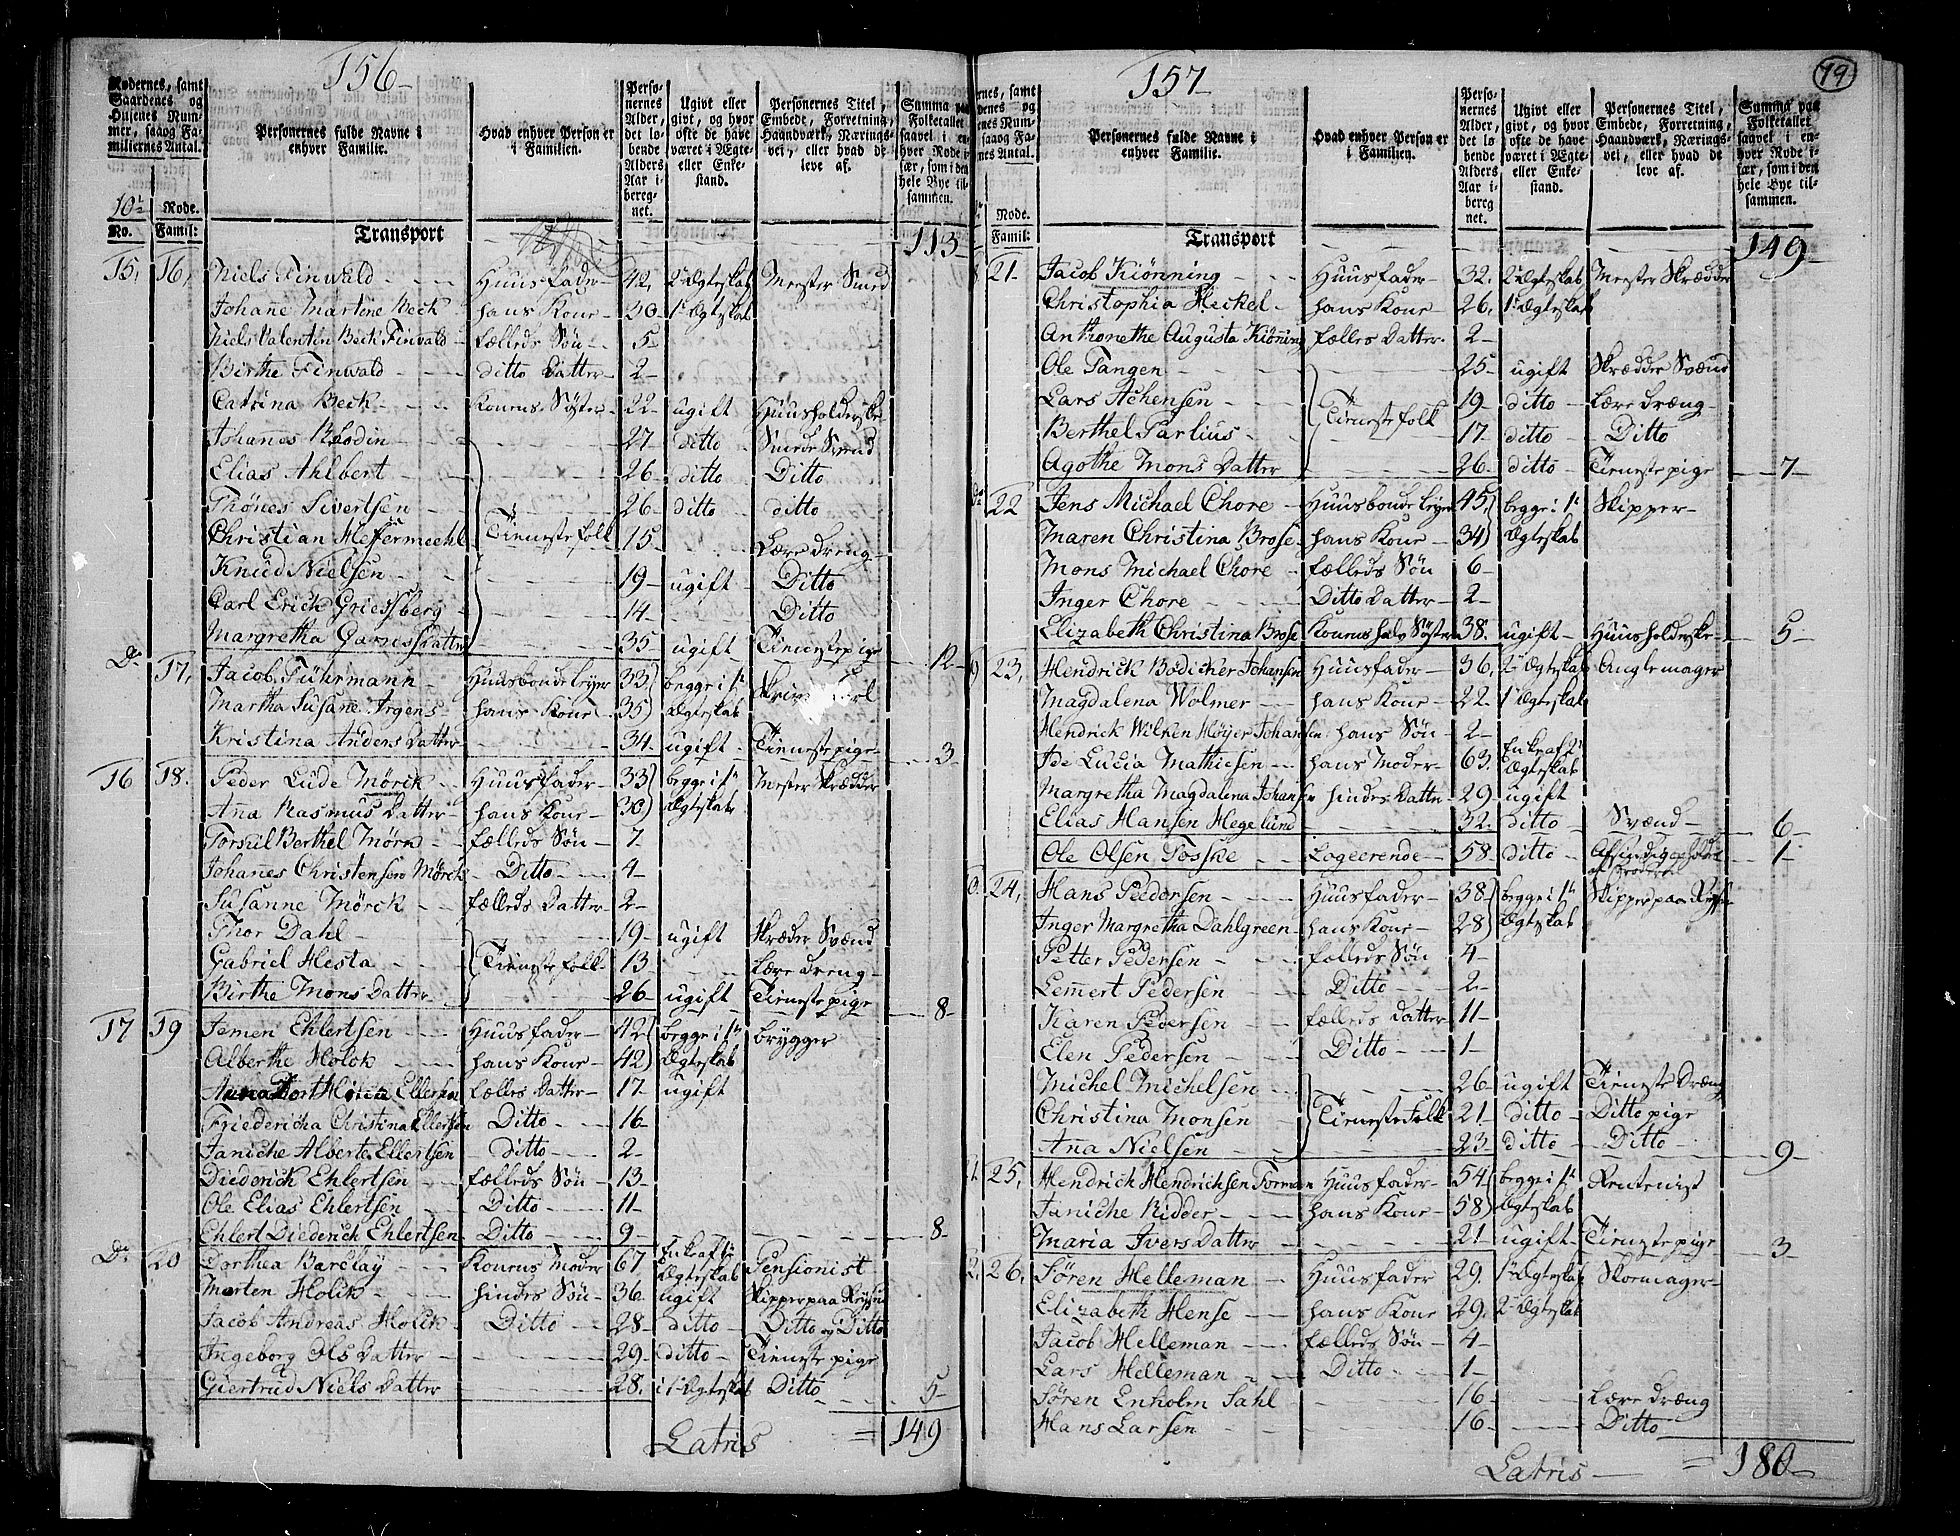 156
Rodernes, samt Gaardenes og Husenes Nummer, saaog Familiernes Antal.
Personernes fulde Navne i enhver Familie.
Hvad enhver Person er i Familien.
Personernes Alder, det løbende Alders Aar iberegnet.
Ugivt eller givt, og hvor ofte de have været i Ægte- eller Enkestand.
Personernes Titel, Embede, Forretning, Haandværk, Næringsvei, eller hvad de leve af.
Summa paa Folketallet saavel i enhver Rode især, som i den hele Bye tilsammen.
10de Rode.
No. Famil:
Transport 113
15, 16, Niels Finwald Huusfader 42, 2det Ægteskab Mester Smed
Johane Martene Beck hans Kone 30 1t Ægteskab
Niels Valentin Beck Finvald fælleds Søn 5
Birthe Finwald ditto Datter 2
Catrina Beck Konens Søster 22 ugift Huusholderske
Johanes Rhodin 27 ditto Smede Svend
Elias Ahlbert 26 ditto Ditto
Thønes Sivertsen 26 ditto ditto
Christian Hefermeehl Tienestefolk 15 Lære dreng
Knud Nielsen 19 ugift Ditto
Carl Erich Goiessberg 14 Ditto
Margretha Garnis Datter 35 ugift Tienestepige 12
Do 17, Jacob Führmann Huusbonde Leyer 33 begge i 1t
Martha Susane Argens hans Kone 35 Ægteskab
Kristina Anders Datter 34 ugift Tienestepige 3
16 18. Peder Lude Mørck Huusfader 33 begge i 1t Mester Skrædder
Ana Rasmus Datter hans Kone 30 Ægteskab
Torsul Berthel Mörk fælleds Søn 7
Johanes Christensen Mörck Ditto 4
Susanne Mörck fælleds Datter 2
Thor Dahl 19 ugift Skræder Svænd
Gabriel Hesta Tienestefolk 13 Lære dreng
Birthe Mons Datter 26 ugift Tienestepige 8
17 19 Jemen Ehlertsen Huusfader 42 begge i 1t brygger
Alberthe Holck hans Kone 42 Ægteskab
Ellertsen fælles Datter 17 ugift
Friedericha Christina Ellertsen Ditto 16
Janiche Alberte Ellertsen ditto 2
Diederich Ehlertsen fælleds Søn 13
Ole Elias Ehlertsen Ditto 11
Ehlert Diederich Ehlertsen Ditto 9 8
Do 20 Dorthea Barclay Konens Moder 67 Enke aft 1t Ægteskab Pensionist
Morten Holck hindes Søn 36 ugift Skipper paa Reyse
Jacob Andreas Holck Ditto 28 ditto Ditto og Ditto
Ingeborg Ols Datter 29 ditto Tienestepige
Giertrud Niels Datter 28. i 1t Ægteskab Ditto 5
Latris = 149
157
79
Personernes fulde Navne i enhver Familie.
Hvad enhver Person er i Familien.
Personernes Alder, det løbende Alders Aar iberegnet.
Ugivt eller givt, og hvor ofte de have været i Ægte- eller Enkestand.
Personernes Titel, Embede, Forretning, Haandværk, Næringsvei, eller hvad de leve af.
Summa paa Folketallet saavel i enhver Rode især, som i den hele Bye tilsammen.
Rode.
Famil:
Transport 149
21. Jacob Kiönning Huusfader 32. 2det Ægteskab Mester Skrædder
Christophia Heckel hans Kone 26. 1t Ægteskab
Anthonethe Augusta Kiöning fælles Datter 2
Ole Tangen 25 ugift Skrædder Svænd
Lars Achensen Tienestefolk 19 ditto Lære dræng
Berthel Parlius 17 ditto Ditto
Agothe Mons Datter 26 ditto Tienestepige 7
22 Jens Michael Chore Huusbonde Leyer 45 begge i 1t Skipper
Maren Christina Brose hans Kone 34 Ægteskab
Mons Michael Chore fælleds Søn 6
Inger Chore Ditto Datter 2
Elizabeth Christina Brose Konens halv Søster 38. ugift Huusholderske 5
23, Hendrick Bodicher Johansen Huusfader 36, 2det Ægteskab Anglemager
Magdalena Wolmer hans Kone 22 1t Ægteskab
Hendrick Wilken Höyer Johansen hans Søn 2
Ide Lucia Mathiesen hans Moder 63. Enke aft 1t Ægteskab
Margretha Magdalena Johansen hindes Datter 29 ugift
Elias Hansen Hegelund 32. ditto Svænd 6
Ole Olsen Foske Logeerende 58 ditto 1
24, Hans Pedersen Huusfader 38 begge i 1t Skipper paa Reyse
Inger Margretha Dahlgreen hans Kone 28 Ægteskab
Petter Pedersen fælleds Søn 4
Lemert Pedersen Ditto 2
Karen Pedersen fælleds Datter 11
Elen Pedersen Ditto 1
Michel Michelsen 26 ugift Tieneste Dræng
Christina Monsen Tienestefolk 21. ditto Ditto pige
Ana Nielsen 23 ditto Ditto 9
25, Hendrich Hendrichsen Forman Huusfader 54 begge i 1t Rentenist
Janiche Ridder hans Kone 58 Ægteskab
Maria Ivers Datter 21 ugift Tienestepige 3
26, Søren Helleman Huusfader 29. 1t Ægteskab Skomager
Elizabeth Hense hans Kone 29. 2det Ægteskab
Jacob Helleman fælleds Søn 4
Lars Helleman Ditto 1
Søren Enholm Sahl 16 Lære dræng
Hans Larsen 16 Ditto
Latris = 180